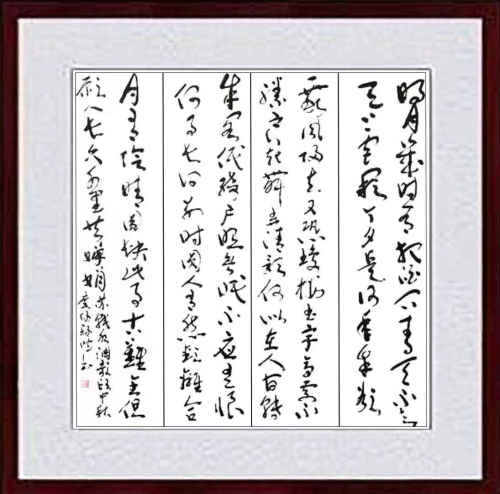 明月幾时有把酒问青天不知
天上宫阙今夕是何年我欲
乘风归去又恐琼楼玉宇高处不
胜寒起舞弄清影何似在人间转
朱阁低绮户照无眠不应有恨
何事长向别时圆人有悲欢离合
月有阴晴圆缺此事古难全但
愿人长久千里共婵娟苏轼水调歌头中秋